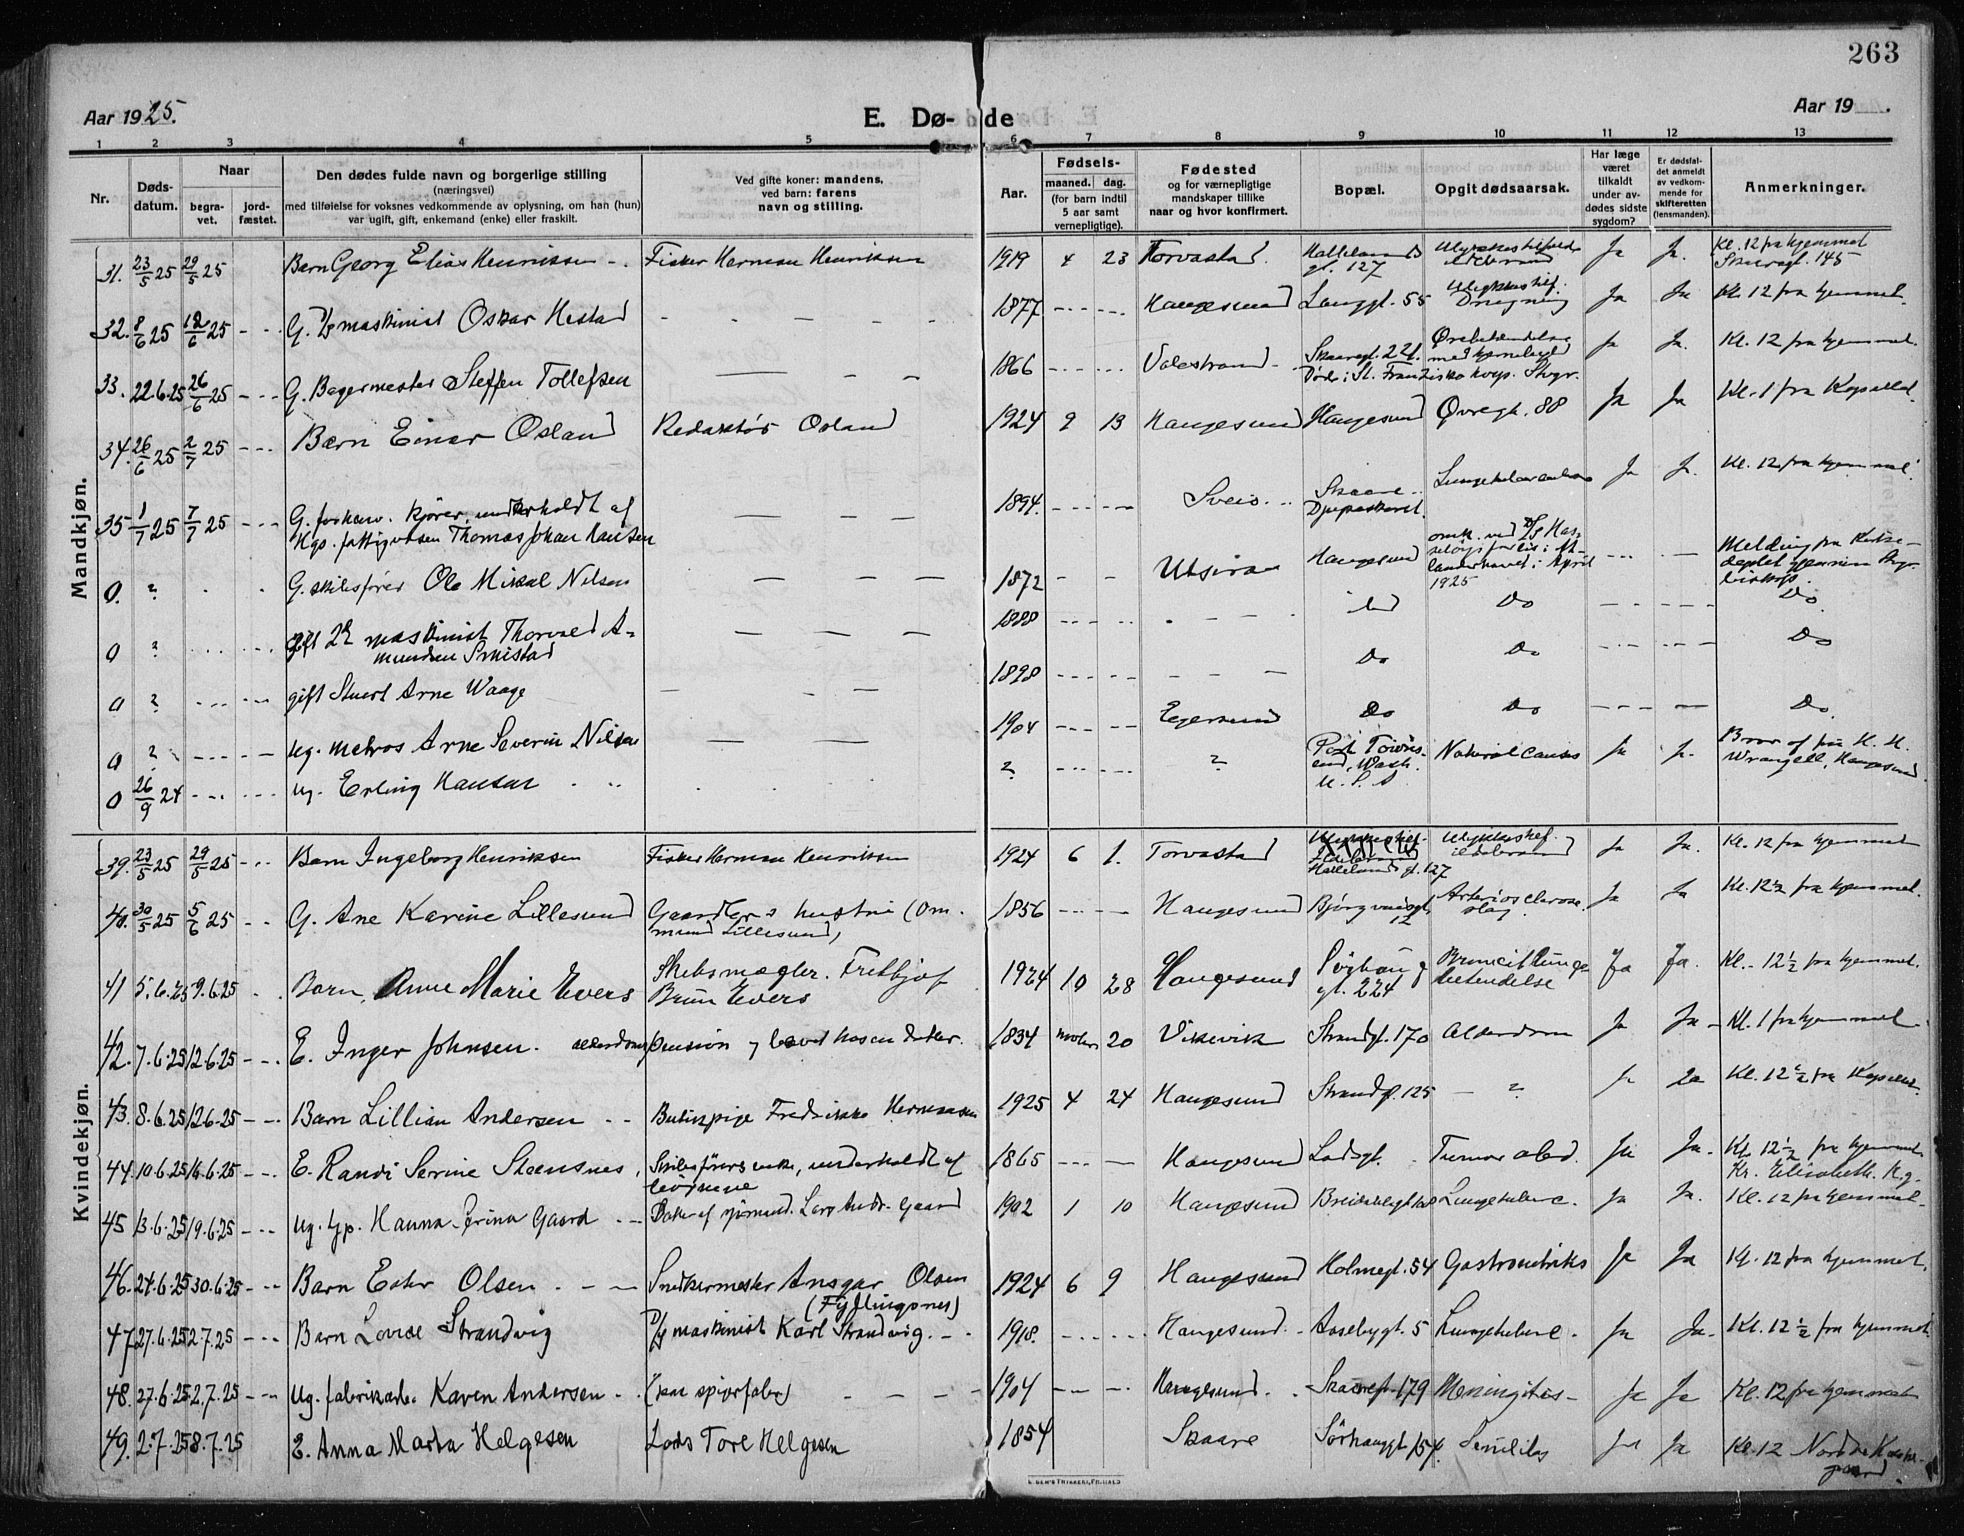 263
Aar 1925.
E. Dø- de
Aar 19 .
1 2 3 4 5 6 7 8 9 10 11 12 13
Nr.
Døds-
datum.
Naar
begra-
vet.
jord-
fæstet.
Den dødes fulde navn og borgerlige stilling
(næringsvei)
med tilføielse for voksnes vedkommende av oplysning, om han (hun)
var ugift, gift, enkemand (enke) eller fraskilt.
Ved gifte koner: mandens,
ved barn: farens
navn og stilling.
Aar.
Fødsels-
maaned. dag.
(for barn indtil
5 aar samt
vernepligtige).
Fødested
og for værnepligtige
mandskaper tillike
naar og hvor konfirmert.
Bopæl.
Opgit dødsaarsak.
Har læge
været
tilkaldt
under av-
dødes sidste
sygdom?
Er dødsfal-
det anmeldt
av vedkom-
mende for
skifteretten
(lensmanden).
Anmerkninger.
Mandkjøn.
31. 23/5 25 29/5 25 Barn Georg Elias Henriksen Fisker Herman Henriksen 1919 4 23 Torvastad. gt. 127 Ja Ja. Kl. 12 fra hjemmet
Skaaregt. 145
32. 8/6 25 12/6 25 G. D/s maskinist Oskar Hestad 1877 Haugesund Langgt. 55 Ulykkeshef. Drugning Ja Ja Kl. 12 fra hjemmet.
33. 22.6.25 26/6 25 G. Bagermester Steffen Tollefsen 1866 Valestrand Skaaregt. 22 Ja Ja. Kl. 12 fra hjemmet.
Døde i St. Franziska hosp. Stvgr.
34. 26/6 25 2/7 25 Barn Einar Osland Redaktør Osland 1924 9 13 Haugesund Haugesund Øvregt. 88 Ja Ja Kl. 1 fra Kapellet.
35 1/7 25 7/7 25 G. forhenv. kjører, underholdt af
Hgs. fattigvæsen Thomas Johan Hansen 1894. Sveio Skaare Ja J. Kl. 12 fra hjemmet.
0. ? G. skibsfører Ole Mikal Nilsen 1872 Utsira Haugesund omk. ved D/S
forlis i At-
lanterhavet i April
1925 Melding fra Kirke-
deptet gjennem
biskop.
0 ? gift 2den maskinist Thorvald A-
mundsen Do Do
0 ? gift Stuert Arne Waage 1898 Do Do Do
0 ? ug. matros Arne Severin Nilsen 1904 Egersund Do Do Do.
0 26/9 24 ug. Erling Hansen ? ? Port Towns-
end, Wash.
U. S. A Natural Causes Ja J. Bror af fru H. H.
Wrangell, Haugesund
Kvindekjøn.
39. 23/5 25 29/5 25 Barn Ingeborg Henriksen Fisker Herman Henriksen 1924 6 1. Torvastad gt. 127 Ulykkeshef. Ja Ja. Kl. 12 fra hjemmet
40. 30/5 25 5/6 25 G. Ane Karine Lillesund Gaardbr.s hustru (Om-
mund Lillesund) 1856 Haugesund 12 Ja Ja Kl. 12½ fra hjemmet.
41 5.6.25 9.6.25 Barn, Anne Marie Evers Skibsmægler. Frithjof
Brun Evers 1924 10 28 Haugesund Sørhaug
gt. 224 Ja Ja. Kl. 12½ fra hjemmet.
42. 7.6.25 12.6.25 E. Inger Johnsen. 1834 20 Vikevik Strandgt. 170 Alderdom Ja Ja Kl. 1 fra hjemmet.
43. 8.6.25 12.6.25 Barn Lillian Andersen Butikpige Fredrikke Hermansen 1925 4 24 Haugesund Strandgt. 125 ? Ja Ja Kl. 12½ fra Kapellet.
44. 10.6.25 16.6.25 E. Randi Serine Stensnes, Skibsførers enke, underholdt af 1865 Haugesund Lodsgt. Tumor abd. Ja Ja. Kl. 12½ fra hjemmet
45 13.6.25 19.6.25 ug. hp. Hanna Serina Gaard Datter af sjømand. Lars Andr. Gaard 1902 1 10 Haugesund Lungetuberc. Ja Ja. Kl. 12 fra hjemmet.
46. 24.6.25 30.6.25 Barn Ester Olsen Snedkermester Ansgar Olsen 1924 6 9 Haugesund Holmegt. 54 Ja Ja Kl. 12 fra hjemmet.
47 27.6.25 2.7.25 Barn Lovise Strandvig D/s maskinist Karl Strandvig. 1918. Haugesund. Aasebygt. 5 Lungetuberc. Ja Ja. Kl. 12½ fra hjemmet.
48. 27.6.25 2.7.25 Ug. fabrikarb. Karen Andersen 1904 Haugesund. Skaaregt. 179 Meningitis Ja Ja Kl. 12 fra hjemmet
49. 2.7.25 8.7.25 E. Anna Marta Helgesen Lods Tore Helgesen 1854 Skaare Sørhauggt 154 Senilitas Ja Ja Kl. 12 Nordre Kirke-
gaard.